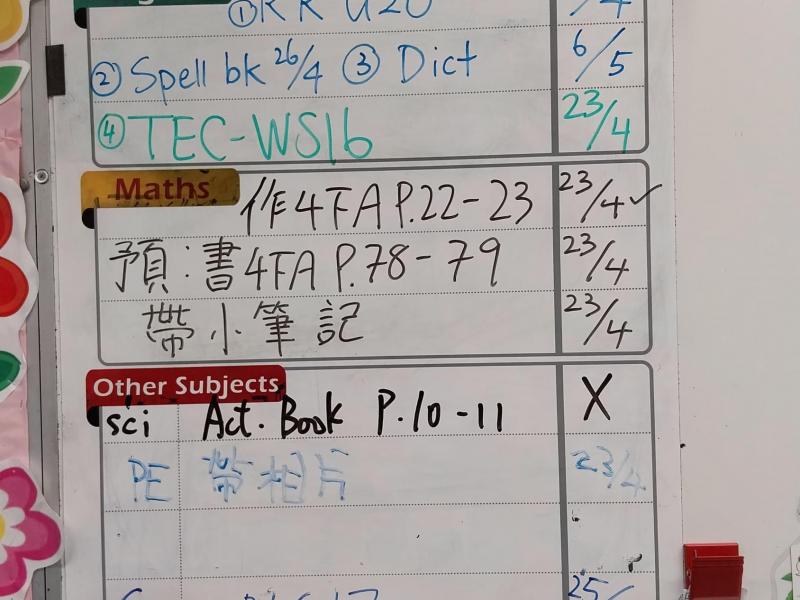 ② Spell bk 26/4 ③ Dict 6/5
④ TEC-WS16 23/4
Maths
作4下A P.22-23 23/4 ✓
預:書4下A P.78-79 23/4
帶小筆記 23/4
Other Subjects
sci Act. Book P.10-11 X
PE 帶相片 23/4
25/